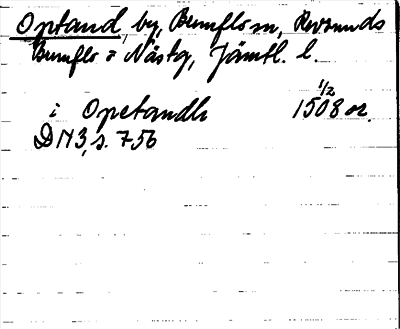 Optand, by, Brunflo sn, Revsunds
Brunflo o Näs tg, Jämtl. l.
1/2
i Opetandh 1508 or.
DN 3, s. 756